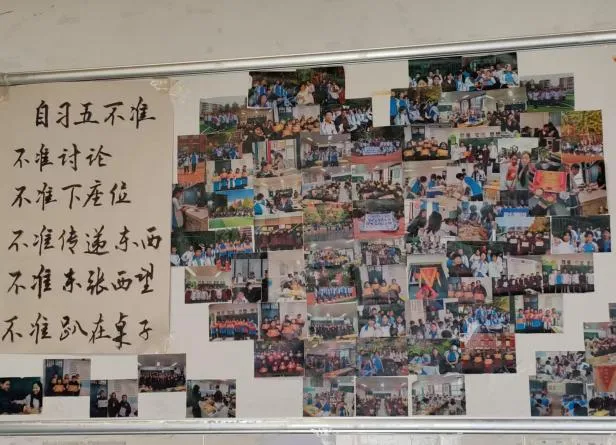 自习五不准
不准讨论
不准下座位
不准传递东西
不准东张西望
不准趴在桌子